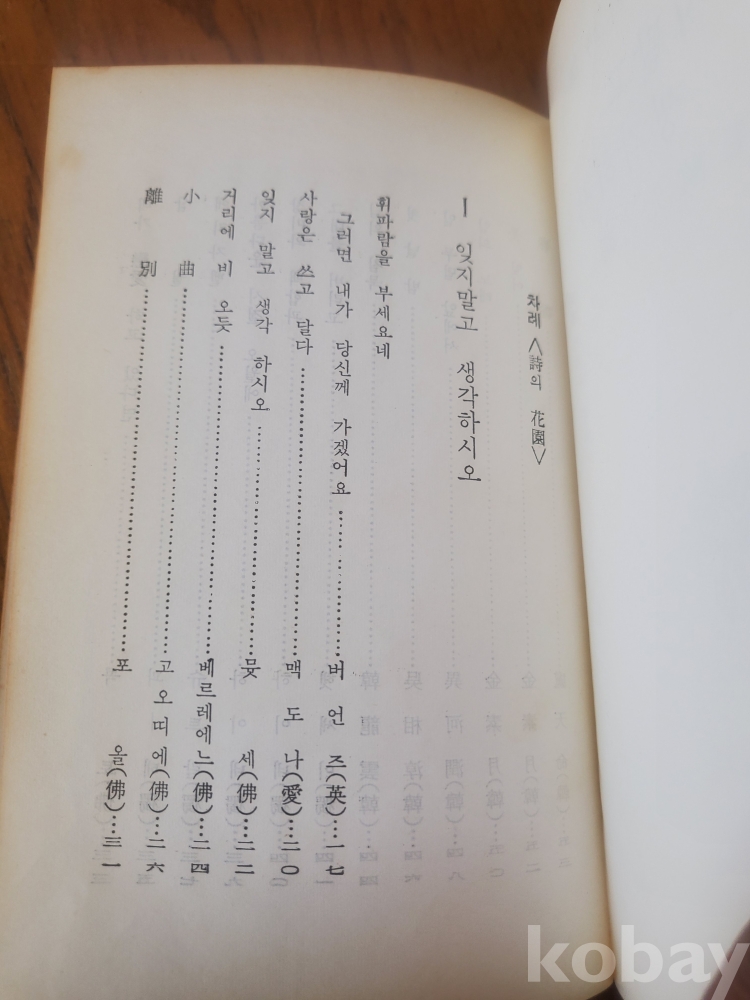 차례 <詩의 花園>
I 잊지말고 생각하시오
휘파람을 부세요네
그러면 내가 당신께 가겠어요…… ……………버 언 즈(英)…一七
사랑은 쓰고 달다……………………맥 도 나(愛)…二〇
잊지 말고 생각 하시오……………………뮷 세(佛)…二二
거리에 비 오듯……………………베르레에느(佛)…二四
小 曲……………………고 오 띠 에(佛)…二六
離 別……………………포 올(佛)…三一
kobay